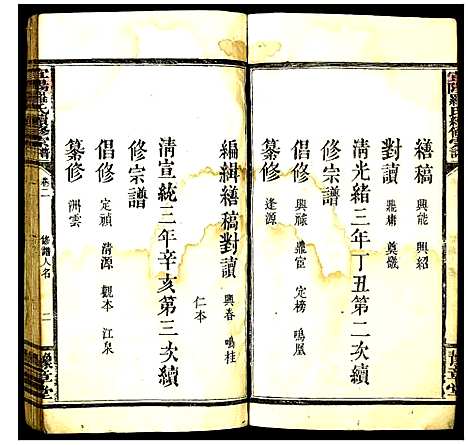 繕稿 興能 興紹
對讀 鼎耕 奠畿
清光緒三年丁丑第二次續
修宗譜
倡修 興祿 鼎宦 定榜 鳴凰
纂修 逢源
豫章堂
編緝繕稿對讀 興春 鳴桂
仁本
清宣統三年辛亥第三次續
修宗譜
倡修 定禎 清源 觀本 江泉
纂修 洲雲
宜陽羅氏續修宗譜
卷二
修譜人名
二
豫章堂